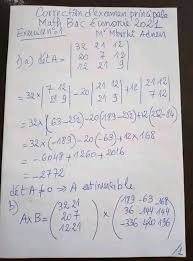 Correction d'examen principale
Math Bac économie 2021
Exercice n°1 Mr Mbarki Adnen
1) a) dét A = | 32 21 12 |
| 20 7 12 |
| 12 21 9 |
= 32 × | 7 12 | - 20 | 21 12 | + 12 | 21 12 |
| 21 9 | | 21 9 | | 7 12 |
= 32 × (63 - 252) - 20 (189 - 252) + 12 (252 - 84)
= 32 × (-189) - 20 × (-63) + 12 × 168
= - 6048 + 1260 + 2016
= - 2772
dét A ≠ 0 ⇒ A est inversible
b)
A × B = ( 32 21 ) × ( 189 -63 -168 )
( 20 7 ) ( 36 -144 144 )
( 12 21 ) ( -336 420 196 )